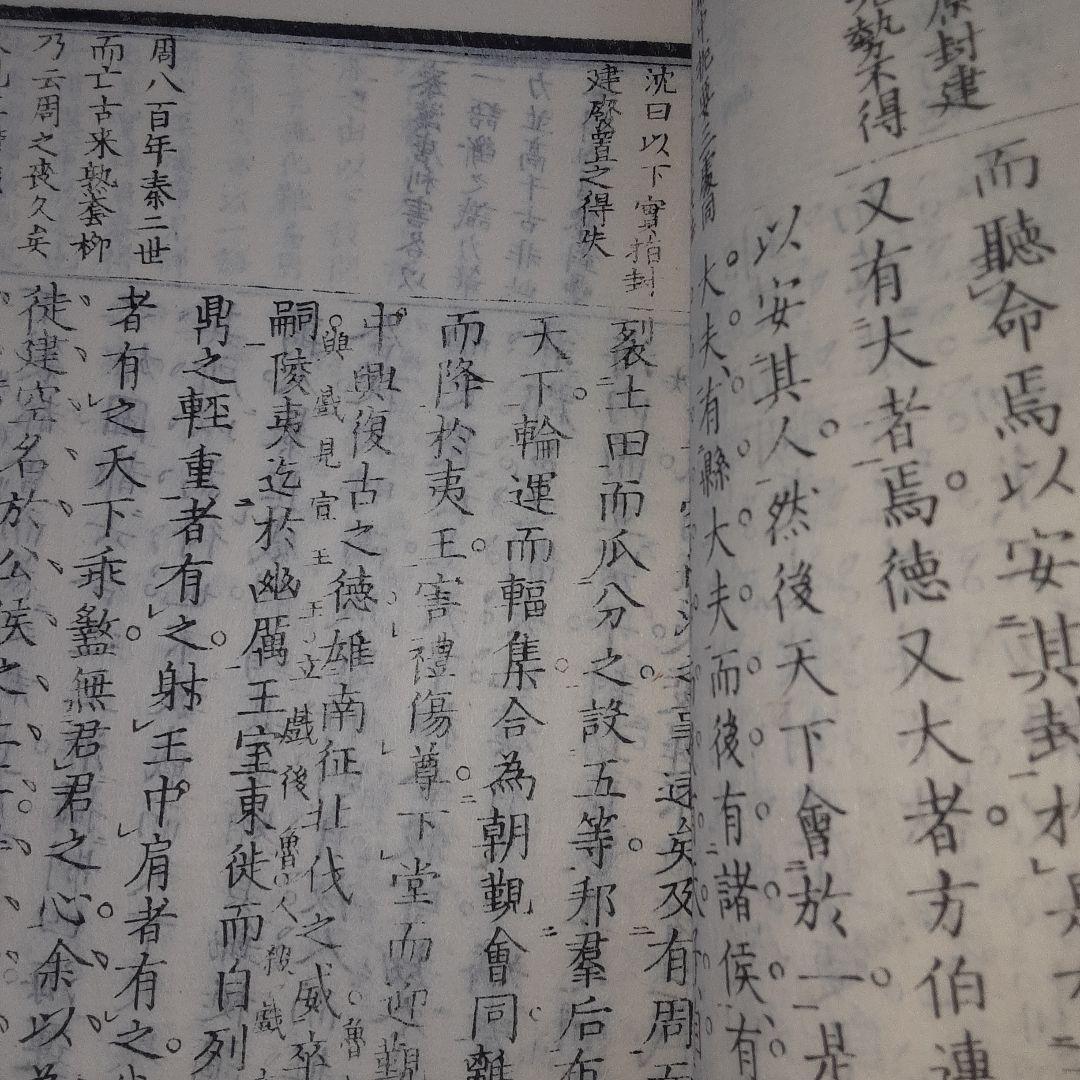 封建
勢不得
而聽命焉以安其封於是
又有大者焉德又大者方伯連
以安其人然後天下會於一是
大夫有縣大夫而後有諸侯有
沈曰以下實指封
建廢置之得失
周八百年秦二世
而亡古来熟套柳
乃云周之喪久矣
遠矣及有周而
裂土田而瓜分之設五等邦羣后布
天下輪運而輻集合為朝覲會同離
而降於夷王害禮傷尊下堂而迎覲
中興復古之德雄南征北伐之威卒
與戲見宣王王立戲後魯人殺戲
魯
嗣陵夷迄於幽厲王室東徙而自列
鼎之輕重者有之射王中肩者有之
者有之天下乖盭無君君之心余以為
徒建空名於公侯之上